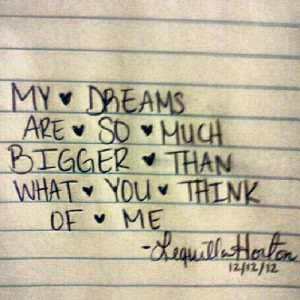 MY ♥ DREAMS
ARE ♥ SO ♥ MUCH
BIGGER ♥ THAN
WHAT ♥ YOU ♥ THINK
OF ♥ ME
-Lequilla Horton
12/12/12